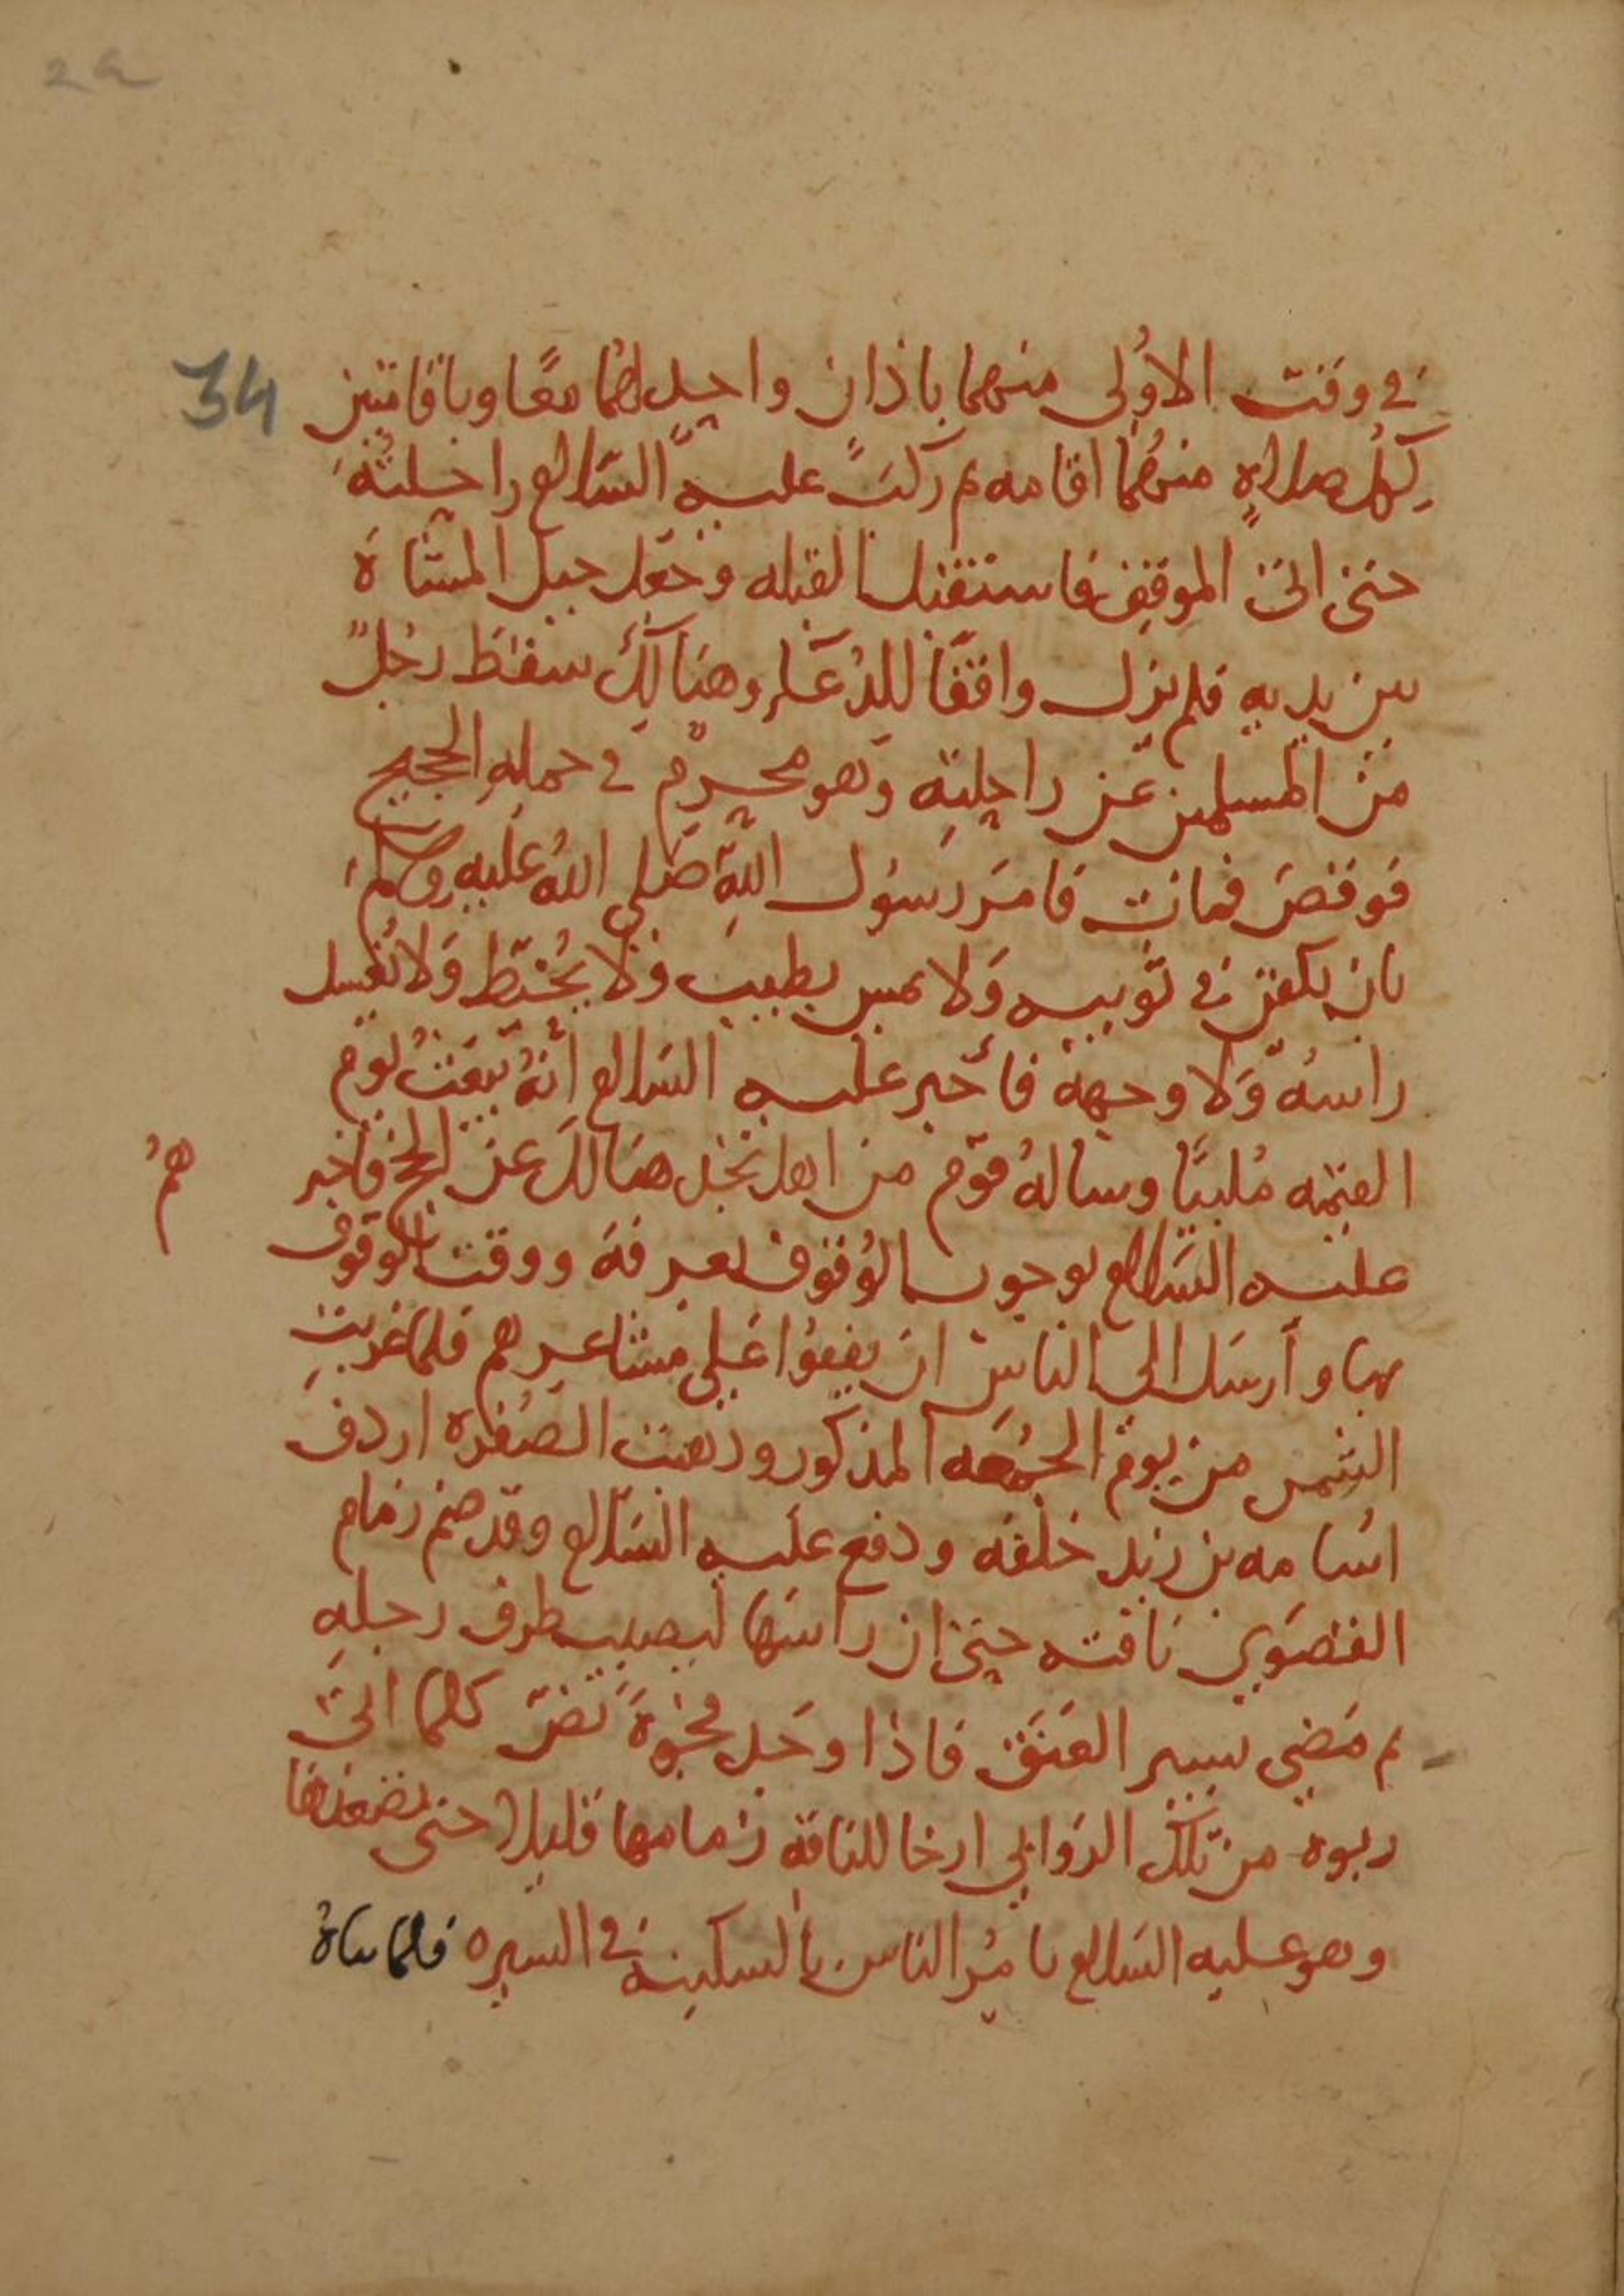 2a
34
في وقت الاولى منهما باذان واحدٍ لهُما معًا وباقامتين
لِكلِّ صلاةٍ منهُما اقامه ثم ركبَ عليه السّلام راحلتهُ
حتى اتى الموقف فاستقبل القبله وجعل جبل المشاة
بين يديه فلم يزل واقفًا للدُعاءِ وهنالك سقط رجلٌ
من المسلمين عن راحلتِه وهو محرمٌ في جملهِ الحجيج
فوقصَ فمات فامَر رسُول اللهِ صَلى اللهُ عليه وسلم
بان يكفن في ثوبيه وَلا يمس بطيب وَلا يُحنّط وَلا يُغسل
راسُه وَلا وجهه فاخبر عليه السّلام أنّهُ يبعَثُ يوم
القيمه مُلبيًا وسالهُ قوم من اهل نجد هنالك عن الحج فاخبر
همُ
عليه السّلام بوجوب الوُقوف بعرفة ووقت الوقوف
بها وأرسَل الى الناس ان يقفوُا عَلى مشاعرِهم فلما غربتِ
الشمس من يوم الجُمعَه المذكور وذهبت الصُفره اردف
اسُامه بن زيد خلفه ودفع علَيه السّلام وقد ضم زمام
القصَوى ناقته حتى ان رأسَها ليصيب طرف رجلهِ
ثم مَضى يسير العَنَق فاذا وجَد فجْوةً نَصّ كلما اتى
ربوه من تلك الروَابي ارخا للناقة زمامها قليلا حتى تصعدها
وهو عليه السّلام يامُر الناس بالسكينه في السيره فلما ساهُ